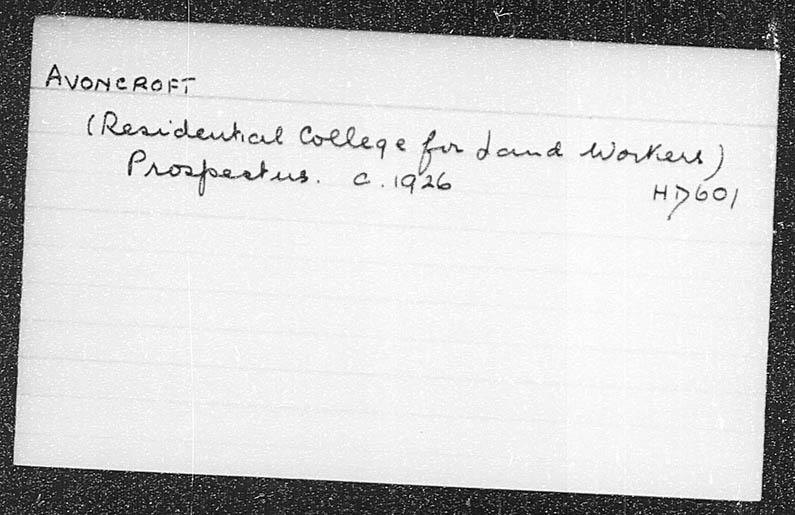 AVONCROFT
(Residential College for Land Workers)
Prospectus. c. 1926 HD601